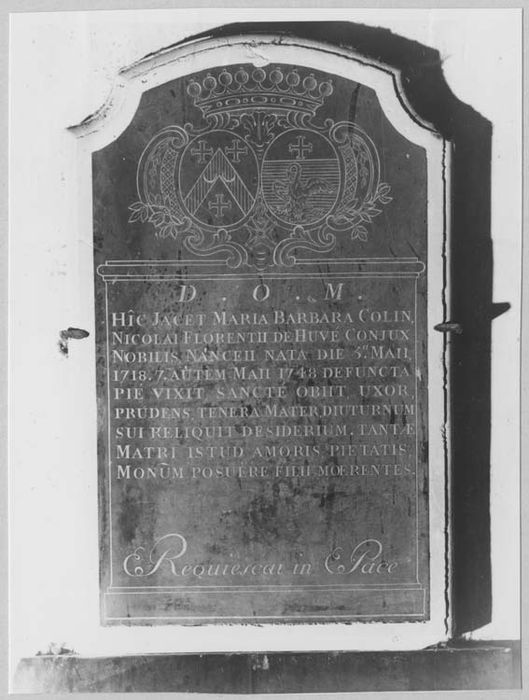 D . O . M .
HÎC JACET MARIA BARBARA COLIN,
NICOLAI FLORENTII DE HUVE CONJUX
NOBILIS, NANCEII NATA DIE 3ª MAII,
1718. 7. AUTEM MAII 1748 DEFUNCTA
PIE VIXIT, SANCTE OBIIT, UXOR,
PRUDENS, TENERA MATER, DIUTURNUM
SUI RELIQUIT DESIDERIUM, TANTÆ
MATRI ISTUD AMORIS PIETATIS,
MONŪM POSUÊRE FILII MOERENTES.
Requiescat in Pace